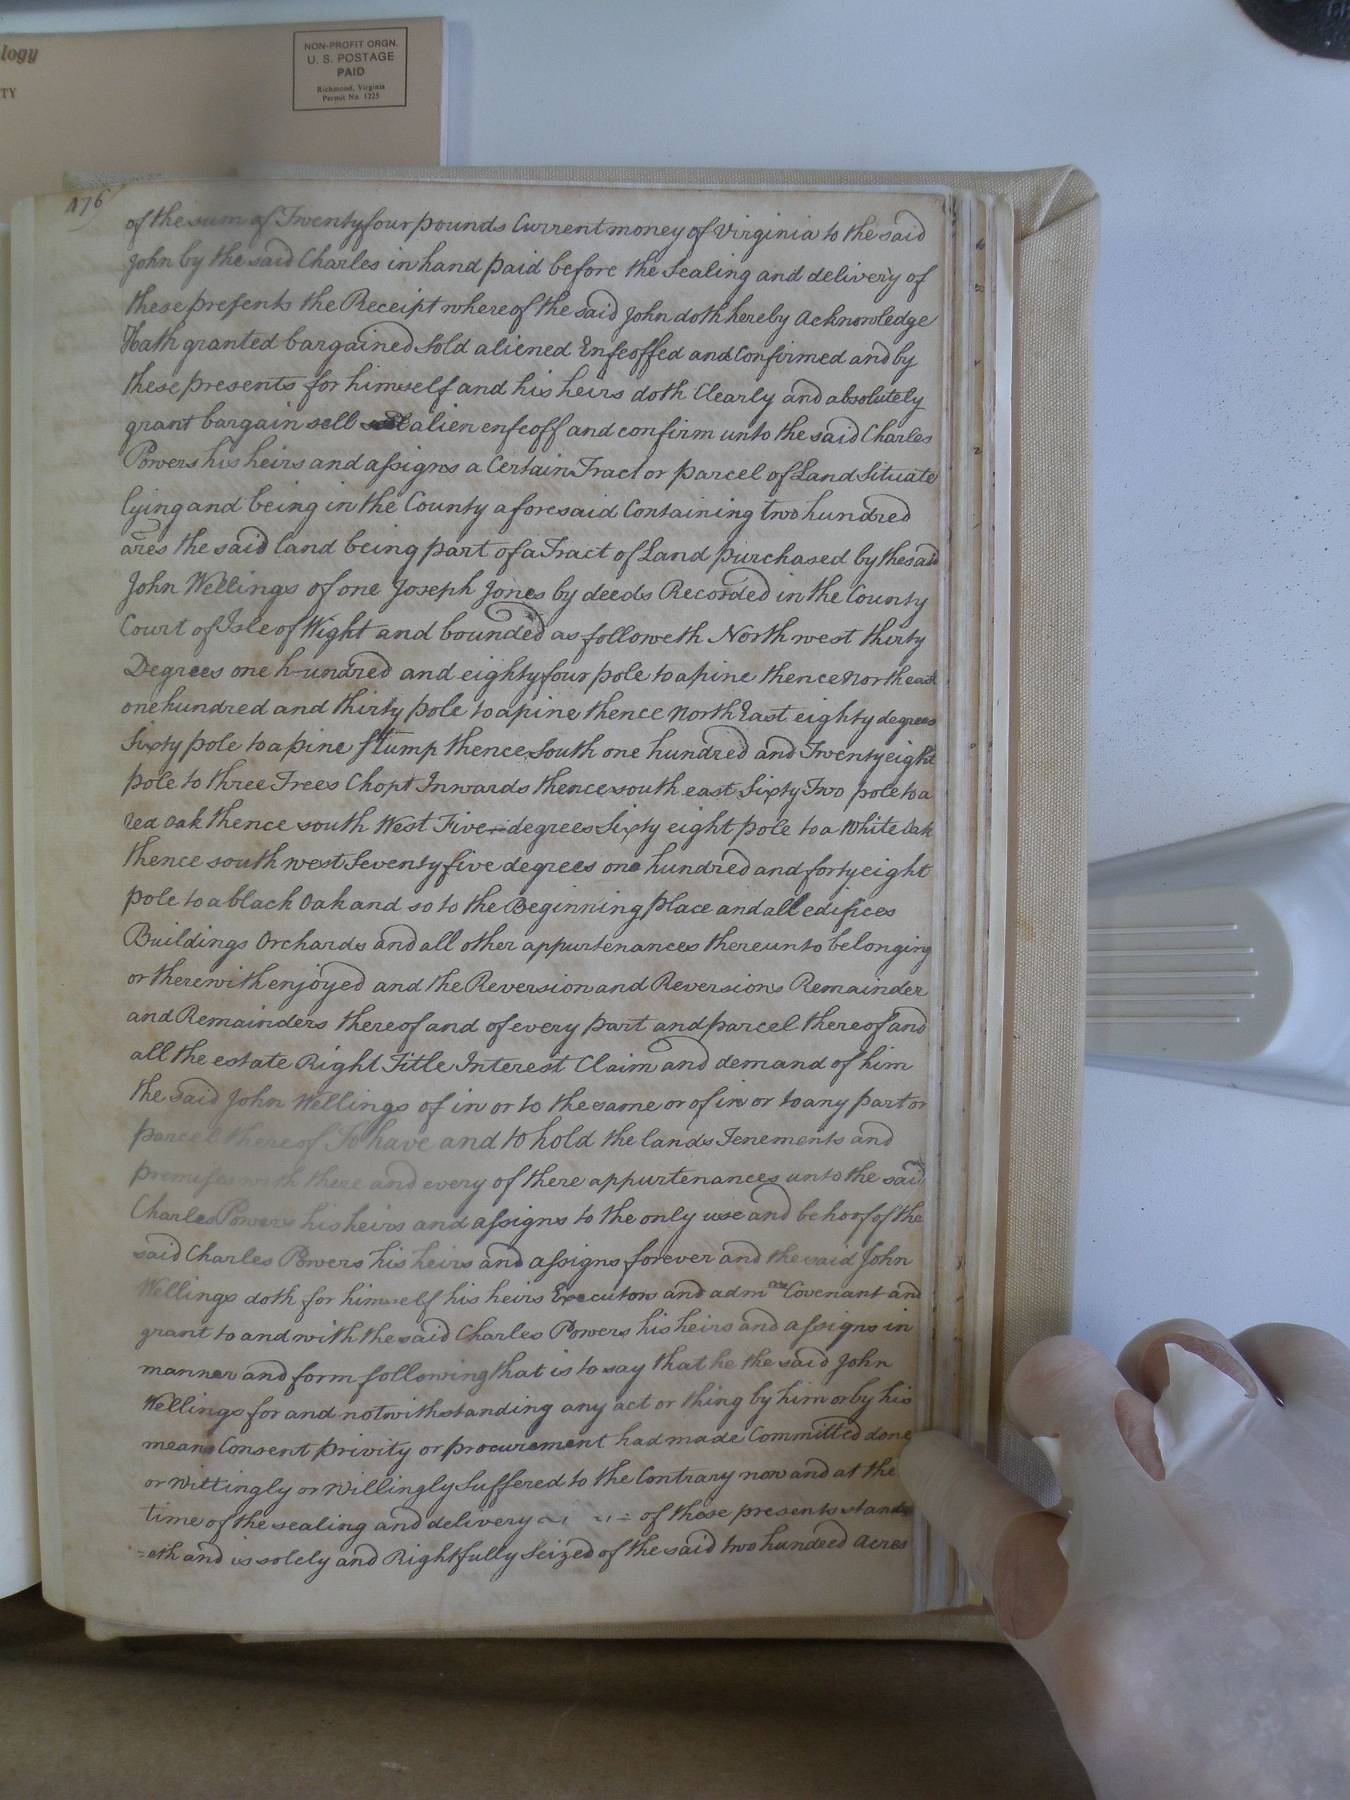 logy
TY
NON-PROFIT ORGN.
U. S. POSTAGE
PAID
Richmond, Virginia
Permit No. 1225
476
of the sum of Twenty four pounds Current money of Virginia to the said
John by the said Charles in hand paid before the Sealing and delivery of
these presents the Receipt whereof the said John doth hereby Acknowledge
Hath granted bargained Sold aliened Enfeoffed and Confirmed and by
these presents for himself and his heirs doth Clearly and absolutely
grant bargain sell alien enfeoff and confirm unto the said Charles
Powers his heirs and assigns a Certain Tract or parcel of Land Situate
lying and being in the County aforesaid Containing two hundred
acres the said land being part of a Tract of Land purchased by the said
John Wellings of one Joseph Jones by deeds Recorded in the County
Court of Isle of Wight and bounded as followeth North west thirty
Degrees one hundred and eighty four pole to a pine thence North east
one hundred and thirty pole to a pine thence North East eighty degrees
Sixty pole to a pine stump thence South one hundred and Twenty eight
pole to three Trees Chopt Inwards thence south east Sixty Two pole to a
red Oak thence south West Five degrees Sixty eight pole to a White Oak
thence south west Seventy five degrees one hundred and forty eight
pole to a black Oak and so to the Beginning place and all edifices
Buildings Orchards and all other appurtenances thereunto belonging
or therewith enjoyed and the Reversion and Reversions Remainder
and Remainders thereof and of every part and parcel thereof and
all the estate Right Title Interest Claim and demand of him
the said John Wellings of in or to the same or of in or to any part or
parcel thereof To have and to hold the lands Tenements and
premises with there and every of there appurtenances unto the said
Charles Powers his heirs and assigns to the only use and behoof of the
said Charles Powers his heirs and assigns forever and the said John
Wellings doth for himself his heirs Executors and admrs Covenant and
grant to and with the said Charles Powers his heirs and assigns in
manner and form following that is to say that he the said John
Wellings for and notwithstanding any act or thing by him or by his
means Consent privity or procurement had made Committed done
or Wittingly or Willingly Suffered to the Contrary now and at the
time of the sealing and delivery of these presents stand
=eth and is solely and Rightfully Seized of the said two hundred Acres